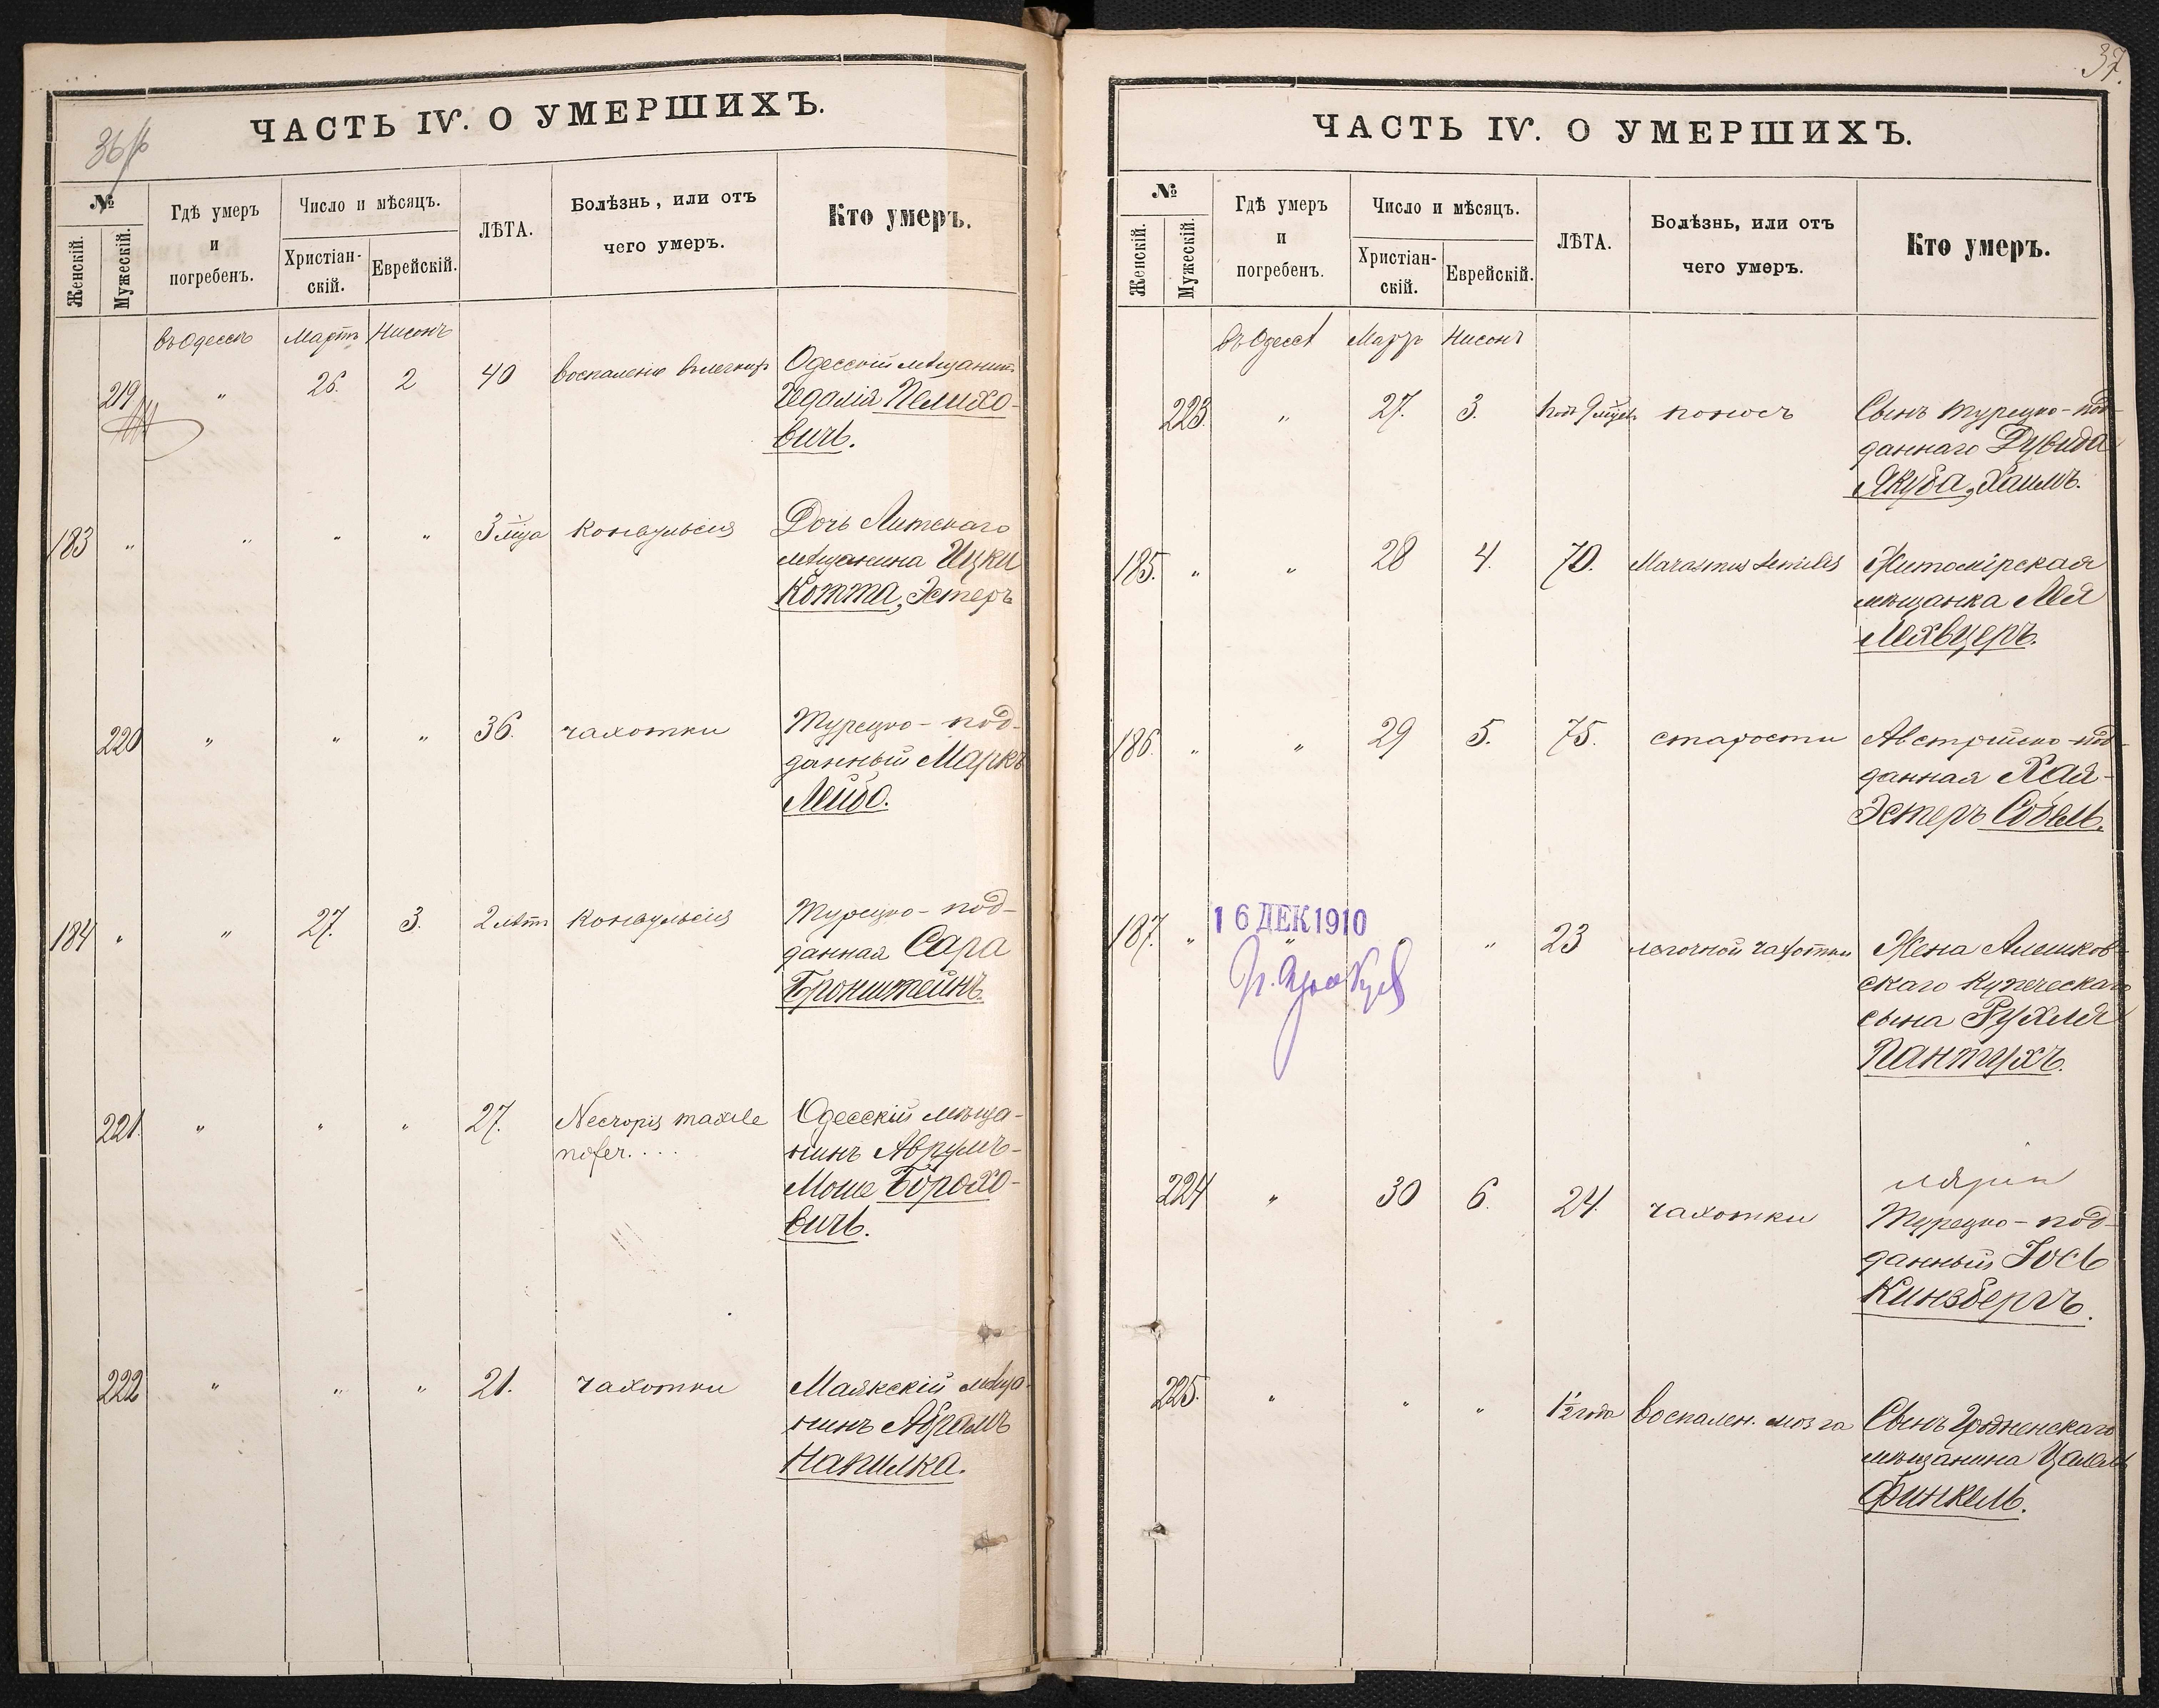 ЧАСТЬ IV. О УМЕРШИХЪ.
№
Женскій.
Мужескій.
Гдѣ умеръ
и
погребенъ.
Число и мѣсяцъ.
Христіан-
скій.
Еврейскій.
ЛѢТА.
Болѣзнь, или отъ
чего умеръ.
Кто умеръ.
въ Одессѣ Мартъ Нисонъ
219 " 26. 2 40 воспаленіе Одесскій мѣщанинъ
Гедалія Пелихо-
вичъ.
183 " " " " 3 мца конвульсія Дочь Литскаго
мѣщанина Ицки
Котта, Эстеръ
220 " " " 36. чахотки Турецко-под-
данный Маркъ
Лейбо.
184 " " 27. 3. 2 лѣтъ конвульсія Турецко-под-
данная Сара
Бронштейнъ.
221. " " " 27. Necropis maxile Одесскій мѣща-
nofer.... нинъ Аврумъ-
Моше Борохо-
вичъ.
222 " " " 21. чахотки Маякскій мѣща-
нинъ Абрамъ
Напилка.
37.
ЧАСТЬ IV. О УМЕРШИХЪ.
№
Женскій.
Мужескій.
Гдѣ умеръ
и
погребенъ.
Число и мѣсяцъ.
Христіан-
скій.
Еврейскій.
ЛѢТА.
Болѣзнь, или отъ
чего умеръ.
Кто умеръ.
въ Одессѣ Мартъ Нисонъ
223. " 27. 3. 1 годъ 9 мцев. поносъ Сынъ турецко-под-
даннаго Дувида
Якуба, Хаимъ.
185. " " 28 4. 70. Marasmus senilis Житомірская
мѣщанка Лея
Лехвцеръ.
186. " " 29 5. 75. старости Австрійско-под-
данная Хая-
Эстеръ Собель.
16 ДЕК 1910
187. " " " 23 легочной чахотки Жена Алешков-
скаго купеческаго
сына Рухля
Пантухъ.
224 " 30 6. 24. чахотки Турецко-под-
данный Іось
Кинзбергъ.
225. " " " 1½ года воспален. мозга Сынъ Гродненскаго
мѣщанина Цалель
Финкель.